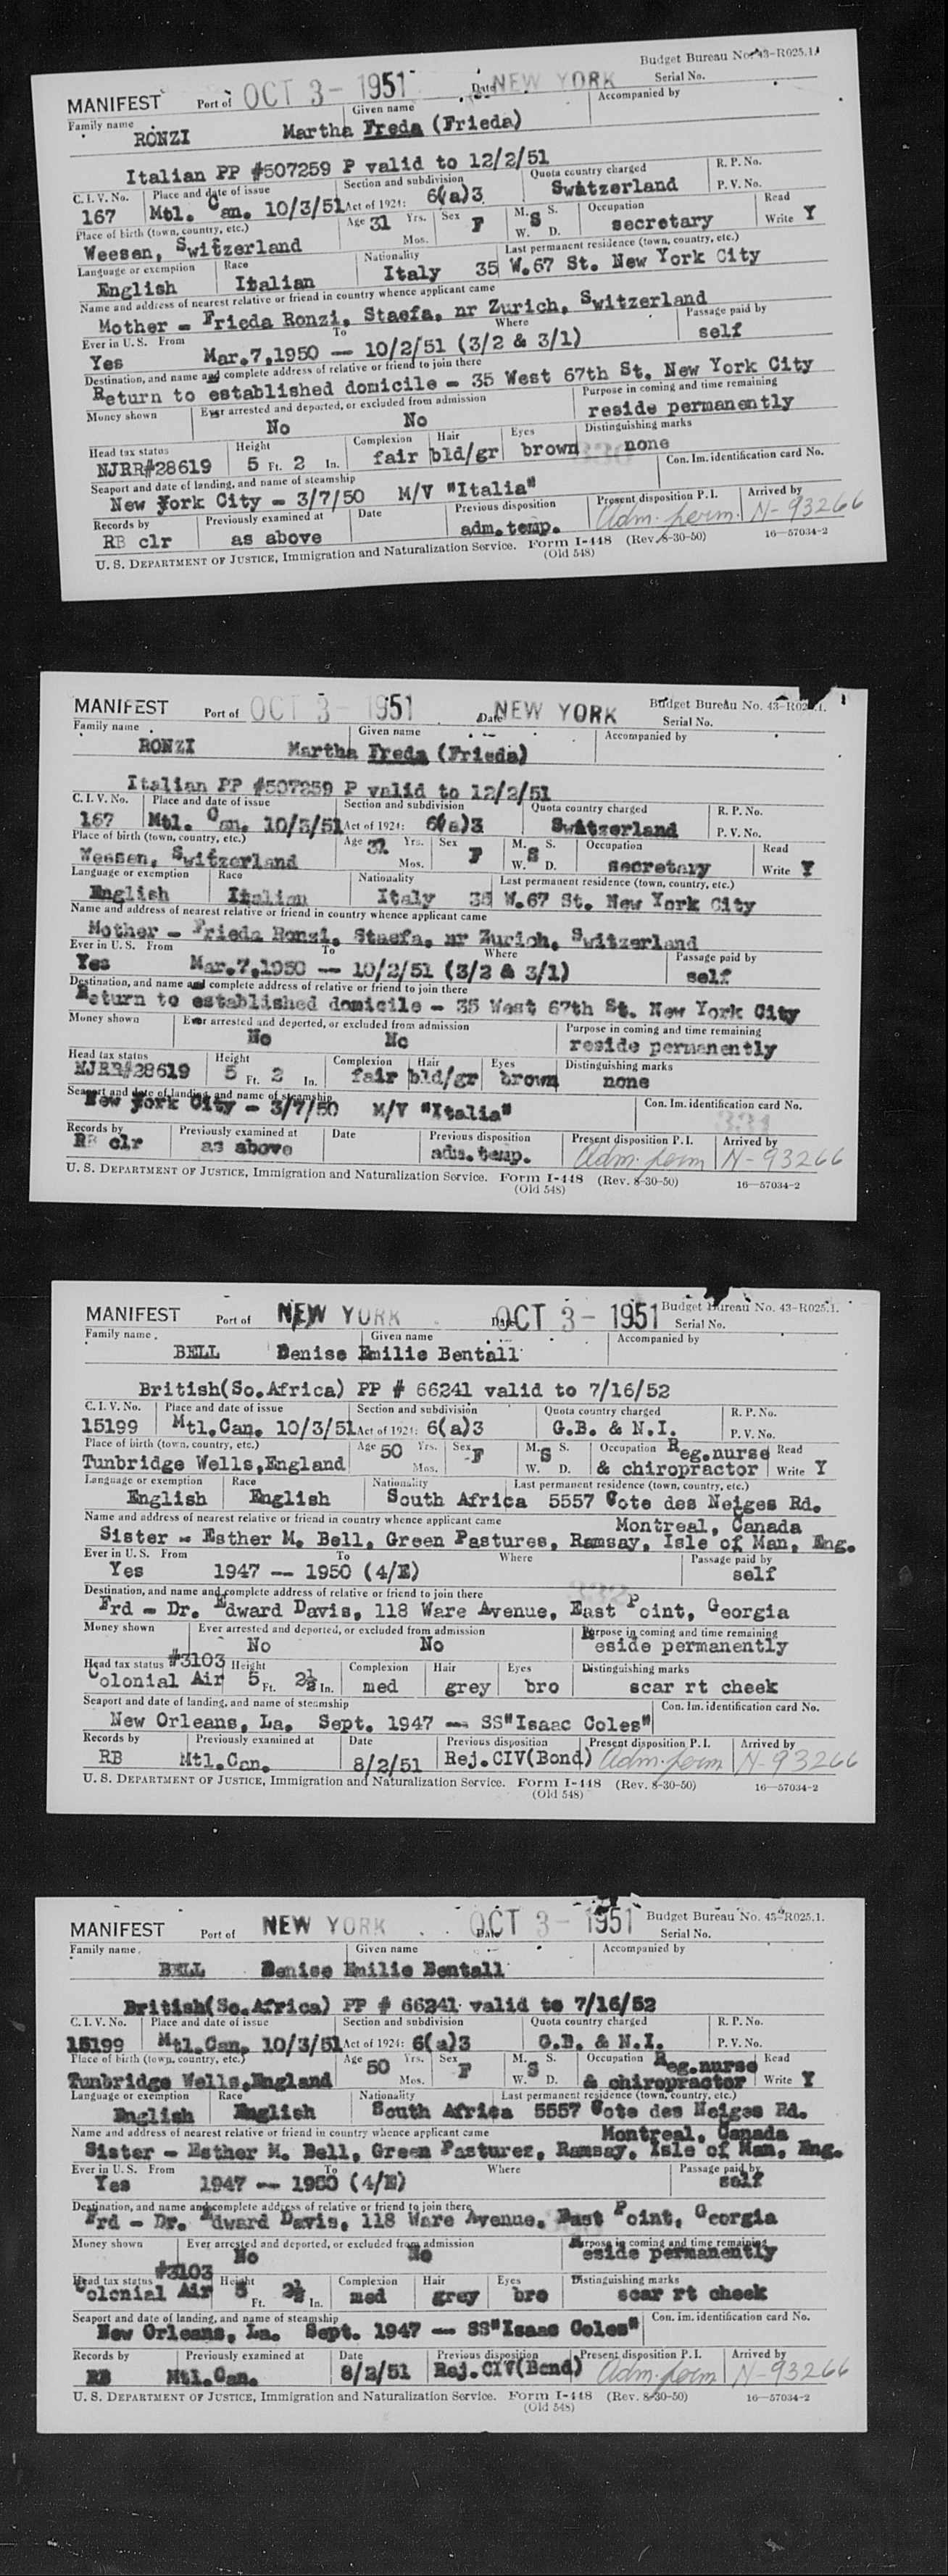 Budget Bureau No. 43-R025.1.
MANIFEST Port of OCT 3 - 1951 Date NEW YORK Serial No.
Family name Given name Accompanied by
RONZI Martha Freda (Frieda)
Italian PP #507259 P valid to 12/2/51
C. I. V. No. Place and date of issue Section and subdivision Quota country charged R. P. No.
167 Mtl. Can. 10/3/51 Act of 1924: 6(a)3 Switzerland P. V. No.
Place of birth (town, country, etc.) Age 31 Yrs. Mos. Sex F M. S S. W. D. Occupation Read
Weesen, Switzerland secretary Write Y
Language or exemption Race Nationality Last permanent residence (town, country, etc.)
English Italian Italy 35 W.67 St. New York City
Name and address of nearest relative or friend in country whence applicant came
Mother - Frieda Ronzi, Staefa, nr Zurich, Switzerland
Ever in U. S. From To Where Passage paid by
Yes Mar.7,1950 -- 10/2/51 (3/2 & 3/1) self
Destination, and name and complete address of relative or friend to join there
Return to established domicile - 35 West 67th St. New York City
Money shown Ever arrested and deported, or excluded from admission Purpose in coming and time remaining
No No reside permanently
Head tax status Height Complexion Hair Eyes Distinguishing marks
NJRR#28619 5 Ft. 2 In. fair bld/gr brown none
Seaport and date of landing, and name of steamship Con. Im. identification card No.
New York City - 3/7/50 M/V "Italia"
Records by Previously examined at Date Previous disposition Present disposition P. I. Arrived by
RB clr as above adm.temp. Adm. perm. N-93266
U. S. DEPARTMENT OF JUSTICE, Immigration and Naturalization Service. Form I-448 (Rev. 8-30-50) 16—57034-2
(Old 548)
MANIFEST Port of OCT 3 1951 Date NEW YORK Budget Bureau No. 43-R025.1.
Serial No.
Family name Given name Accompanied by
RONZI Martha Freda (Frieda)
Italian PP #507259 P valid to 12/2/51
C. I. V. No. Place and date of issue Section and subdivision Quota country charged R. P. No.
167 Mtl. Can. 10/3/51 Act of 1924: 6(a)3 Switzerland P. V. No.
Place of birth (town, country, etc.) Age 31 Yrs. Mos. Sex F M. S S. W. D. Occupation Read
Weesen, Switzerland secretary Write Y
Language or exemption Race Nationality Last permanent residence (town, country, etc.)
English Italian Italy 35 W.67 St. New York City
Name and address of nearest relative or friend in country whence applicant came
Mother - Frieda Ronzi, Staefa, nr Zurich, Switzerland
Ever in U. S. From To Where Passage paid by
Yes Mar.7,1950 -- 10/2/51 (3/2 & 3/1) self
Destination, and name and complete address of relative or friend to join there
Return to established domicile - 35 West 67th St. New York City
Money shown Ever arrested and deported, or excluded from admission Purpose in coming and time remaining
No No reside permanently
Head tax status Height Complexion Hair Eyes Distinguishing marks
NJRR#28619 5 Ft. 2 In. fair bld/gr brown none
Seaport and date of landing, and name of steamship Con. Im. identification card No.
New York City - 3/7/50 M/V "Italia" 331
Records by Previously examined at Date Previous disposition Present disposition P. I. Arrived by
RB clr as above adm.temp. Adm. perm N-93266
U. S. DEPARTMENT OF JUSTICE, Immigration and Naturalization Service. Form I-448 (Rev. 8-30-50) 16—57034-2
(Old 548)
MANIFEST Port of NEW YORK Date OCT 3 - 1951 Budget Bureau No. 43-R025.1.
Serial No.
Family name Given name Accompanied by
BELL Denise Emilie Bentall
British(So.Africa) PP # 66241 valid to 7/16/52
C. I. V. No. Place and date of issue Section and subdivision Quota country charged R. P. No.
15199 Mtl.Can. 10/3/51 Act of 1924: 6(a)3 G.B. & N.I. P. V. No.
Place of birth (town, country, etc.) Age 50 Yrs. Mos. Sex F M. S S. W. D. Occupation Reg.nurse Read
Tunbridge Wells,England & chiropractor Write Y
Language or exemption Race Nationality Last permanent residence (town, country, etc.)
English English South Africa 5557 Cote des Neiges Rd.
Name and address of nearest relative or friend in country whence applicant came Montreal, Canada
Sister - Esther M. Bell, Green Pastures, Ramsay, Isle of Man, Eng.
Ever in U. S. From To Where Passage paid by
Yes 1947 -- 1950 (4/E) self
Destination, and name and complete address of relative or friend to join there 332
Frd - Dr. Edward Davis, 118 Ware Avenue, East Point, Georgia
Money shown Ever arrested and deported, or excluded from admission Purpose in coming and time remaining
No No reside permanently
Head tax status #3103 Height Complexion Hair Eyes Distinguishing marks
Colonial Air 5 Ft. 2½ In. med grey bro scar rt cheek
Seaport and date of landing, and name of steamship Con. Im. identification card No.
New Orleans, La. Sept. 1947 -- SS"Isaac Coles"
Records by Previously examined at Date Previous disposition Present disposition P. I. Arrived by
RB Mtl.Can. 8/2/51 Rej.CIV(Bond) Adm. perm N-93266
U. S. DEPARTMENT OF JUSTICE, Immigration and Naturalization Service. Form I-448 (Rev. 8-30-50) 16—57034-2
(Old 548)
MANIFEST Port of NEW YORK Date OCT 3 - 1951 Budget Bureau No. 43-R025.1.
Serial No.
Family name Given name Accompanied by
BELL Denise Emilie Bentall
British(So.Africa) PP # 66241 valid to 7/16/52
C. I. V. No. Place and date of issue Section and subdivision Quota country charged R. P. No.
15199 Mtl.Can. 10/3/51 Act of 1924: 6(a)3 G.B. & N.I. P. V. No.
Place of birth (town, country, etc.) Age 50 Yrs. Mos. Sex F M. S S. W. D. Occupation Reg.nurse Read
Tunbridge Wells,England & chiropractor Write Y
Language or exemption Race Nationality Last permanent residence (town, country, etc.)
English English South Africa 5557 Cote des Neiges Rd.
Name and address of nearest relative or friend in country whence applicant came Montreal, Canada
Sister - Esther M. Bell, Green Pastures, Ramsay, Isle of Man, Eng.
Ever in U. S. From To Where Passage paid by
Yes 1947 -- 1950 (4/E) self
Destination, and name and complete address of relative or friend to join there
Frd - Dr. Edward Davis, 118 Ware Avenue, East Point, Georgia
Money shown Ever arrested and deported, or excluded from admission Purpose in coming and time remaining
No No reside permanently
Head tax status #3103 Height Complexion Hair Eyes Distinguishing marks
Colonial Air 5 Ft. 2½ In. med grey bro scar rt cheek
Seaport and date of landing, and name of steamship Con. im. identification card No.
New Orleans, La. Sept. 1947 -- SS"Isaac Coles"
Records by Previously examined at Date Previous disposition Present disposition P. I. Arrived by
RB Mtl.Can. 8/2/51 Rej.CIV(Bond) Adm. perm N-93266
U. S. DEPARTMENT OF JUSTICE, Immigration and Naturalization Service. Form I-448 (Rev. 8-30-50) 16—57034-2
(Old 548)